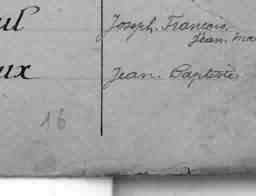 ul Joseph. François.
Jean. Ma
ux Jean. Baptiste
16